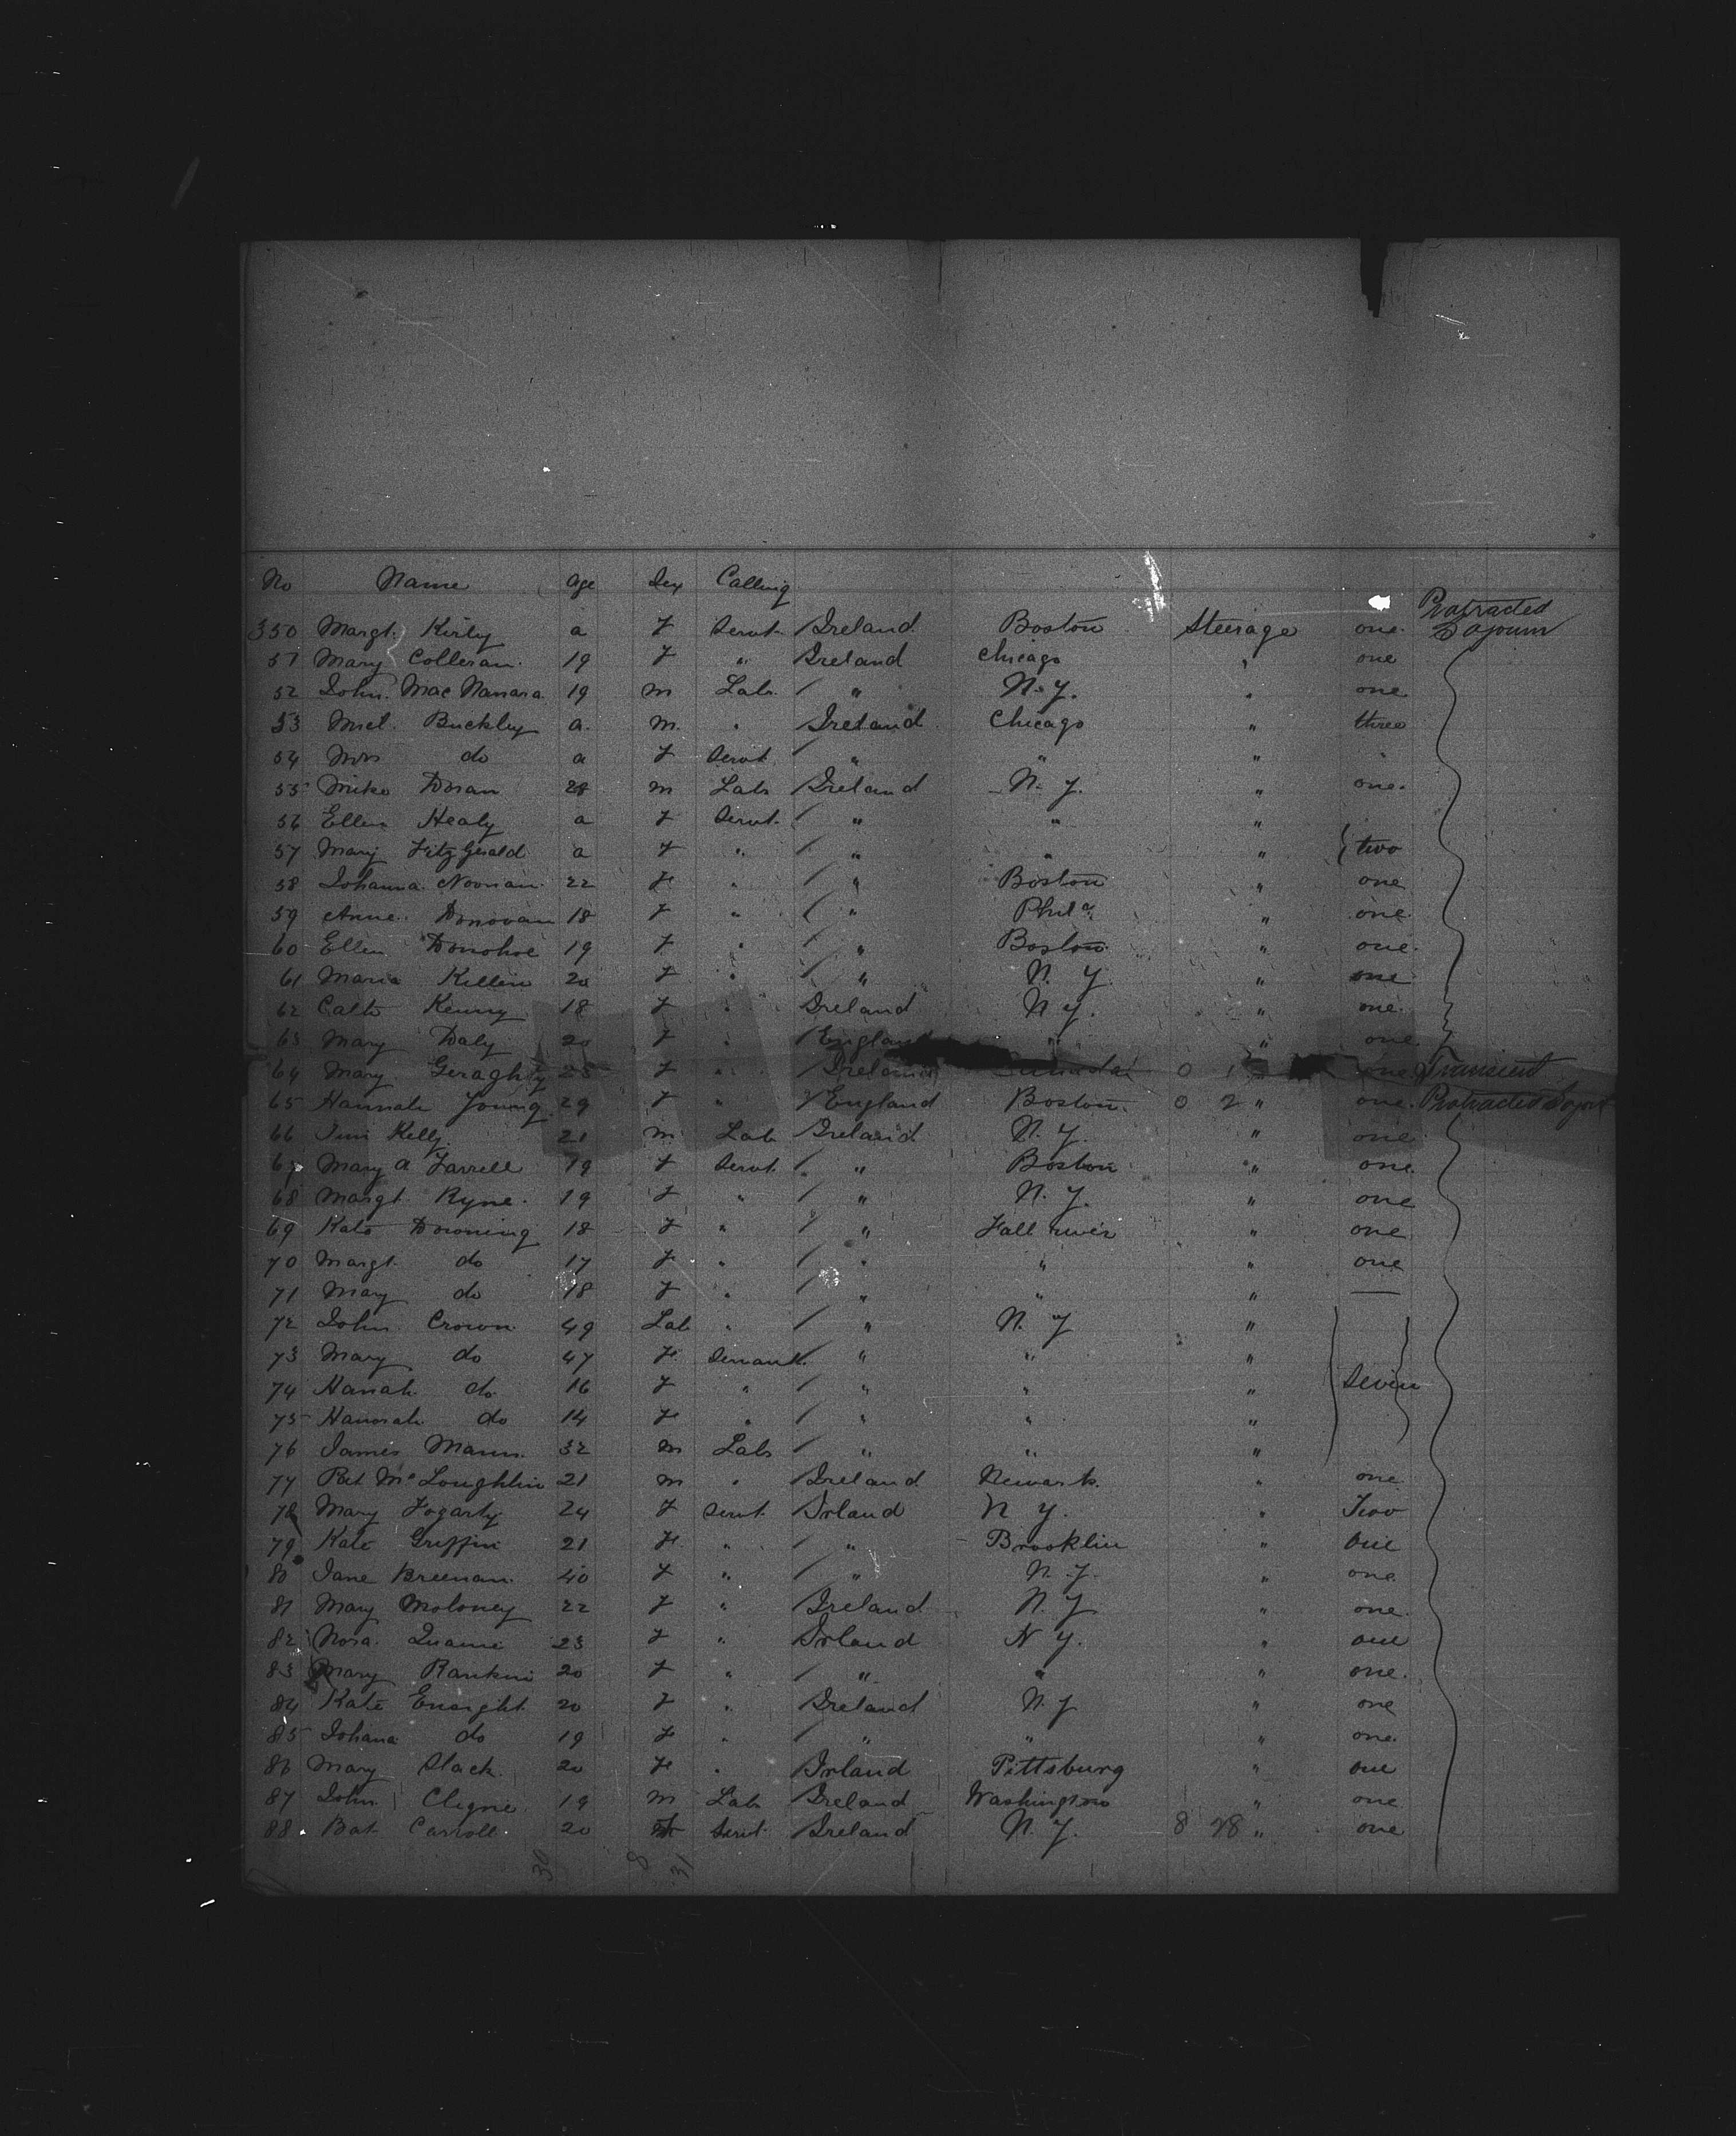 No Name Age Sex Calling
Protracted
350 Margt. Kirby a F Servt. Ireland Boston Steerage one Sojourn
51 Mary Colleran 19 F " Ireland Chicago " one
52 John Mac Namara 19 m Labr / " N. Y. " one
53 Micl. Buckley a m " Ireland Chicago " three
54 Mrs do a F Servt / " " " "
55 Mike Doran 28 m Labr Ireland N. Y. " one
56 Ellen Healy a F Servt. / " " "
57 Mary FitzGerald a F " / " " " two
58 Johanna Noonan 22 F " / " Boston " one
59 Anne Donovan 18 F " / " Phila " one
60 Ellen Donohoe 19 F " / " Boston " one
61 Maria Killen 20 F " / " N. Y. " one
62 Cath Kenny 18 F " Ireland N Y. " one
63 Mary Daly 20 F " England " " one
64 Mary Geraghty 25 F " Ireland Canada 0 1 " one Transient
65 Hannah Young 29 F " England Boston 0 2 " one Protracted Sojour
66 Jim Kelly 21 m Lab Ireland N. Y. " one
67 Mary A Farrell 19 F Servt / " Boston " one
68 Margt Ryne 19 F " / " N. Y. " one
69 Kate Downing 18 F " / " Fall river " one
70 Margt do 17 F " / " " " one
71 Mary do 18 F " / " " " —
72 John Crown 49 Lab " / " N. Y "
73 Mary do 47 F Servant / " " "
74 Hanah do 16 F " / " " " Seven
75 Hannah do 14 F " / " " "
76 James Mann 32 m Labr / " " "
77 Pat McLoughlin 21 m " Ireland Newark " one
78 Mary Fogarty 24 F Servt Irland N Y. " Two
79 Kate Griffin 21 F " / " Brooklin " One
80 Jane Breenan 40 F " / " N. Y. " one
81 Mary Moloney 22 F " Ireland N. Y " one
82 Nora 23 F " Irland N Y. " one
83 Mary Rankin 20 F " / " " " one
84 Kate Enright 20 F " Ireland N. Y " one
85 Johana do 19 F " / " " " one
86 Mary Slack 20 F " Irland Pittsburg " one
87 John 19 m Labr Ireland Washington " one
88 Bat Carroll 20 Servt Ireland N. Y. 8 28 " one
30 8 31